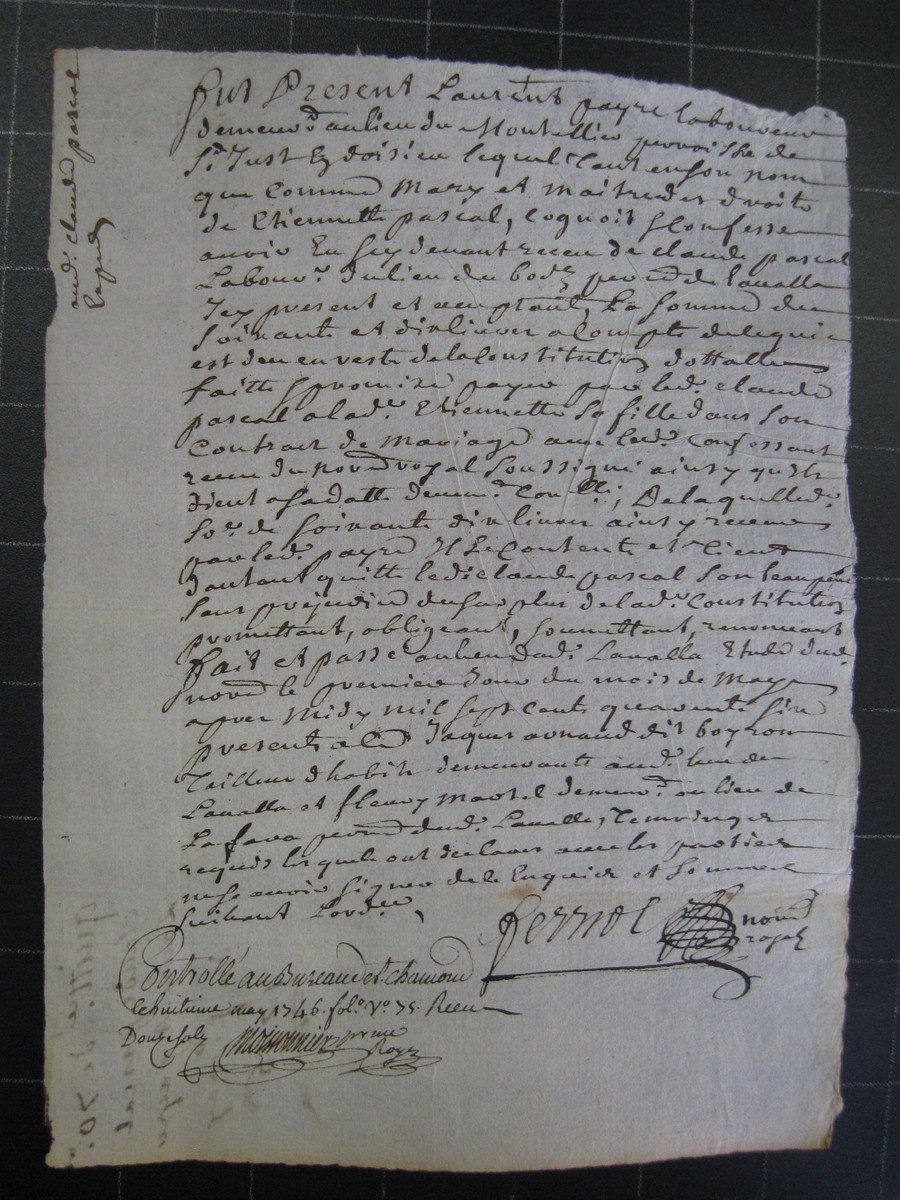 aud. claude pascal
Fut Present Laurens payre laboureur
demeur.t au lieu du Montellier parroisse de
S.t Just En doisieu lequel tant en son nom
que Comme Mary et maitre des droits
de Etiennette pascal, Cognoit & Confesse
avoir En cy devant receu de claude pascal
Labour.r du lieu du paroisse de Lavalla
Icy present et aceptant, La somme de
Soixante et dix livres a Compte de ce qui
est deu en reste de la Constitution dottalle
faitte & promise payer par led. claude
pascal a lad. Etiennette Sa fille dans Son
Contract de Mariage avec led. Confessant
receu du No.re royal Soussigné ainsy qu'ils
dient a sa datte deuem.t Con.llé; De laquelle d.
So.e de Soixante dix livres ainsy receue
par led. payre Il Se Contente et tient
d'autant quitte led. claude pascal Son beaupère
Sans préjudice du surplus de lad. Constitution
promettant, obligeant, Soumettant, renonceant
fait et passé au lieu dud. Lavalla Etude dud.
no.re le premier Jour du mois de May
apres Midy mil sept Cents quarente Six
presents a ce Jaques arnaud dit boyron
Tailleur d'habits demeurants aud. lieu de
Lavalla et fleury Martel demeur.t au lieu de
La fara paroisse dud. Lavalla, Temoins
requis lesquels ont déclaré avec les parties
ne scavoir signer de ce Enquis et Sommés
Suivant L'ord.ce
no.re
royal
Controllé au Bureau de s.t chamond
le huitieme may 1746. fol.o v.o 75. Receu
Douze sols